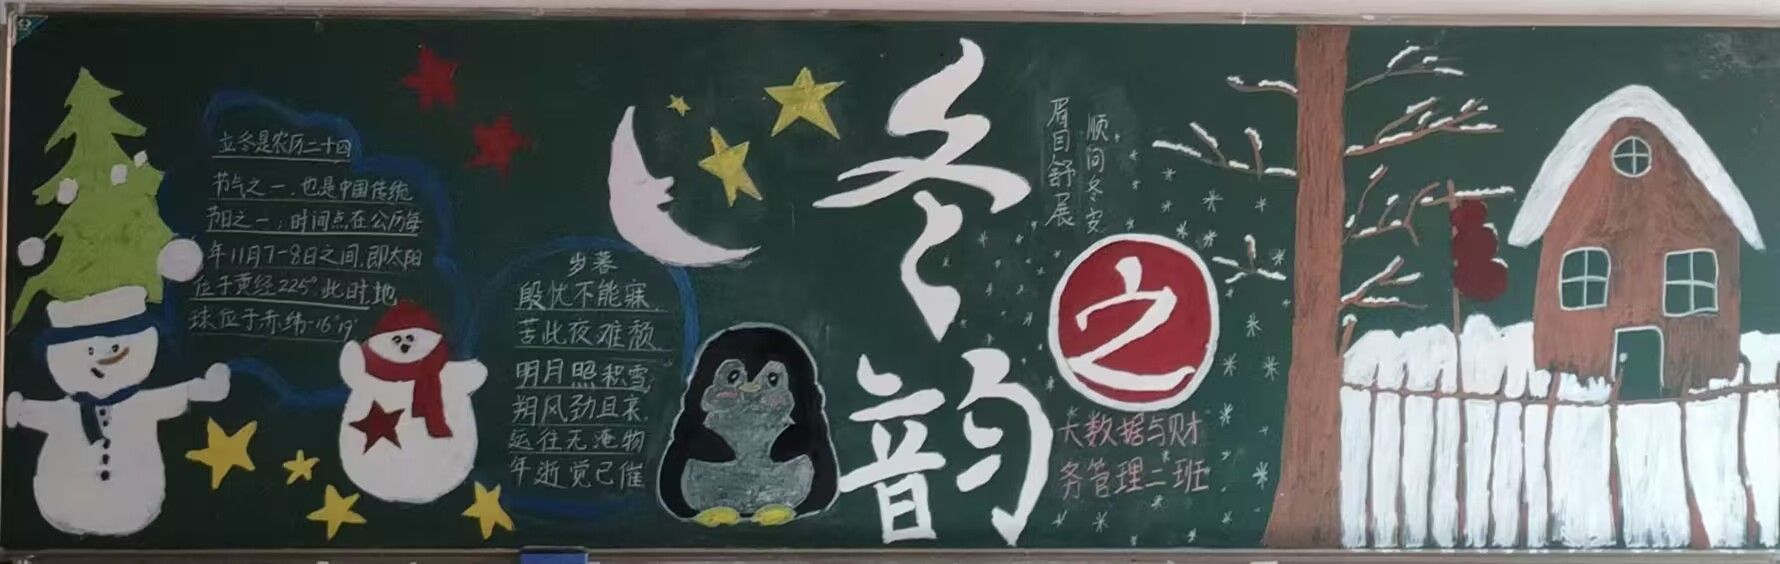 立冬是农历二十四
节气之一,也是中国传统
节日之一;时间点在公历每
年11月7-8日之间,即太阳
位于黄经225°.此时,地
球位于赤纬-16°19'
岁暮
殷忧不能寐,
苦此夜难颓,
明月照积雪,
朔风劲且哀,
运往无淹物
年逝觉已催
冬
之
韵
顺问冬安
眉目舒展
大数据与财
务管理二班